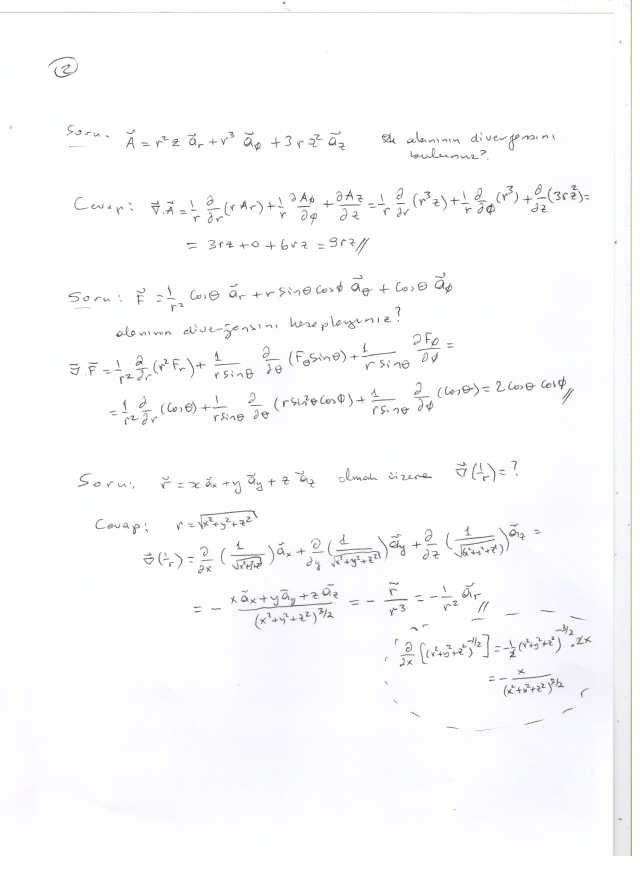 2
Soru. A⃗ = r²z a⃗r + r³ a⃗ϕ + 3rz² a⃗z alanının diverjensini
bulunuz?
Cevap: ∇⃗.A⃗ = 1/r ∂/∂r (rAr) + 1/r ∂Aϕ/∂ϕ + ∂Az/∂z = 1/r ∂/∂r (r³z) + 1/r ∂/∂ϕ (r³) + ∂/∂z (3rz²) =
= 3rz + 0 + 6rz = 9rz //
Soru: F⃗ = 1/r² Cosθ a⃗r + r sinθ cosϕ a⃗θ + Cosθ a⃗ϕ
alanının diverjensini hesaplayınız?
∇⃗.F⃗ = 1/r² ∂/∂r (r²Fr) + 1/(r sinθ) ∂/∂θ (Fθ sinθ) + 1/(r sinθ) ∂Fϕ/∂ϕ =
= 1/r² ∂/∂r (Cosθ) + 1/(r sinθ) ∂/∂θ (r sin²θ cosϕ) + 1/(r sinθ) ∂/∂ϕ (cosθ) = 2 cosθ cosϕ //
Soru: r⃗ = x a⃗x + y a⃗y + z a⃗z olmak üzere ∇⃗(1/r) = ?
Cevap: r = √(x²+y²+z²)
∇⃗(1/r) = ∂/∂x (1/√(x²+y²+z²)) a⃗x + ∂/∂y (1/√(x²+y²+z²)) a⃗y + ∂/∂z (1/√(x²+y²+z²)) a⃗z =
= - (x a⃗x + y a⃗y + z a⃗z)/(x²+y²+z²)^3/2 = - r⃗/r³ = - 1/r² a⃗r //
∂/∂x [(x²+y²+z²)^-1/2] = -1/2 (x²+y²+z²)^-3/2 . 2x
= - x/(x²+y²+z²)^3/2